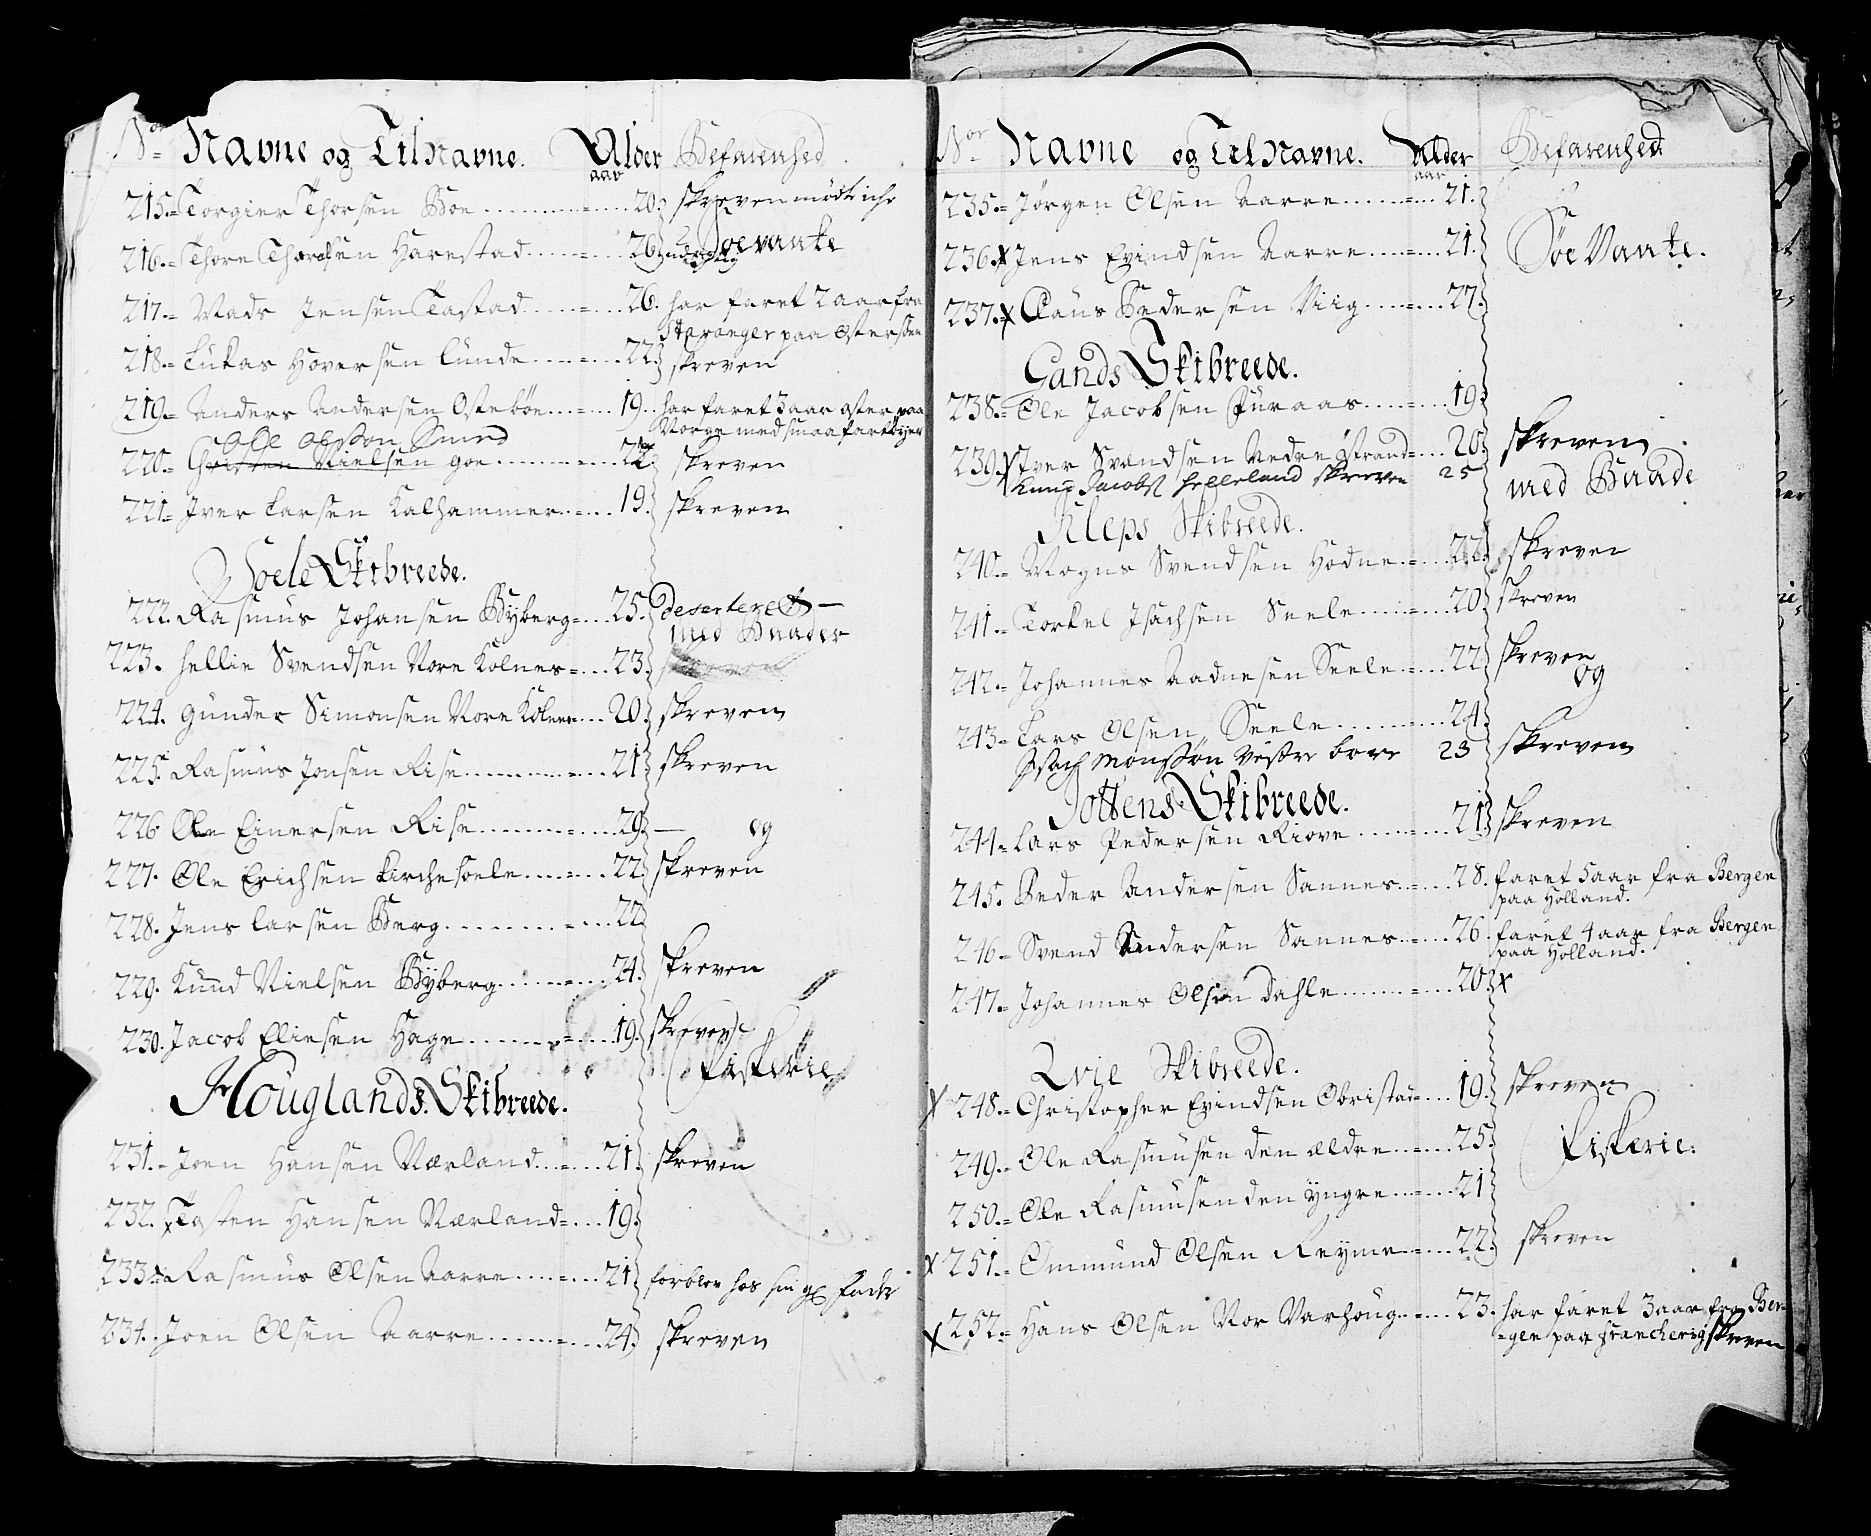 No Navne og Tilnavne. Alder Befarenhed
aar
215. Torgier Thorsen Boe 20. skreven mødt iche
216. Thore Thordsen Harestad 26. Søe vante
udygtig
217. Mads Jensen Tastad 26. har faret 2 aar fra
Stavanger paa Østersøen
218. Lukas Hoversen Lunde 22. skreven
219. Anders Andersen Ostebøe 19. har faret 3 aar oster paa
Norge med smaa fartøyer
Ole Olsson Smed
220. Christen Nielsen goe 22. skreven
221. Iver Larsen Kalhammer 19. skreven
Soele Skibreede.
222. Rasmus Johansen Byberg 25. deserteret
med Baader
223. Hellie Svendsen Nore Kolnes 23.
224. Gunder Simonsen Nore Kolnes 20. skreven
225. Rasmus Jonsen Rise 21. skreven
226. Ole Einersen Rise 29. og
227. Ole Erichsen Kirchesoele 22. skreven
228. Jens Larsen Berg 22
229. Knud Nielsen Byberg 24. skreven
230. Jacob Eliesen Hage 19. skreven
Fiskerie
Houglands Skibreede.
231. Joen Hansen Nærland 21. skreven
232. Tosten Hansen Nærland 19.
233. x Rasmus Olsen Aarre 21 forblev hos sin gl Fader
234. Joen Olsen Aarre 24. skreven
No Navne og Tilnavne. Alder Befarenhed
aar
235. Jørgen Olsen Aarre 21.
236. x Jens Evindsen Aarre 21. Søe Vante.
237. x Claus Pedersen Viig 27.
Gands Skibreede.
238. Ole Jacobsen Furaas 19.
239. x Iver Svendsen Nedre Østrand 20. skreven
Knud Jacobs Helleland skreven 25 med Baade
Kleps Skibreede.
240. Mogns Svendsen Hodne 22. skreven
241. Torkel Isachsen Seele 20. skreven
242. Johannes Aadnesen Seele 22 skreven
og
243. Lars Olsen Seele 24.
Isach Monssøn Vestre bore 23 skreven
Jottens Skibreede.
244. Lars Pedersen Riove 21. skreven
245. Peder Andersen Sannes 28. faret 5 aar fra Bergen
paa Holland.
246. Svend Andersen Sannes 26. faret 4 aar fra Bergen
paa Holland.
247. Johannes Olsen Dahle 20. x
Qvie Skibreede.
x 248. Christopher Evindsen Obristad 19. skreven
249. Ole Rasmusen den ældre 25. Fiskerie.
250. Ole Rasmusen den yngre 21
x 251. Ommund Olsen Reyme 22. skreven
x 252. Hans Olsen Nor Varhoug 23. har faret 3 aar fra Ber-
-gen paa Francherig skreven